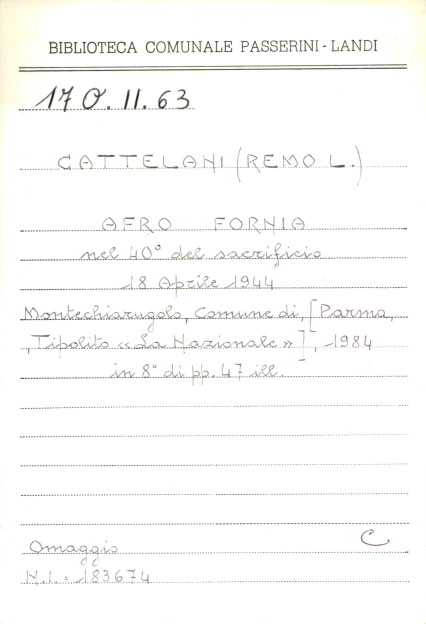 BIBLIOTECA COMUNALE PASSERINI - LANDI
170. II. 63
CATTELANI (REMO L.)
AFRO FORNIA
nel 40° del sacrificio
18 Aprile 1944
Montechiarugolo, Comune di, [Parma,
Tipolito «La Nazionale»], 1984
in 8° di pp. 47 ill.
C
Omaggio
N.I.: 183674